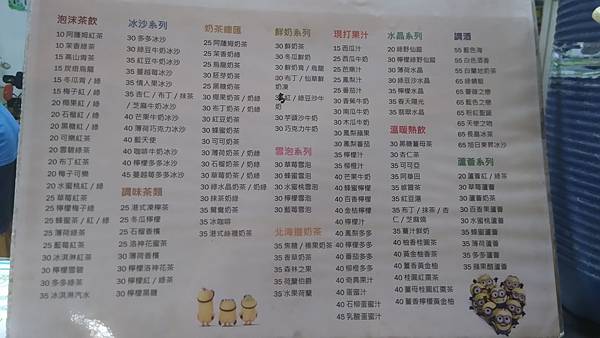 泡沫茶飲
10 阿薩姆紅茶
10 茉香綠茶
15 高山青茶
15 炭焙烏龍
15 冬瓜青 / 綠
15 梅子紅 / 綠
20 椰果紅 / 綠
20 石榴紅 / 綠
20 黑糖紅 / 綠
20 可樂紅茶
20 雪碧綠茶
20 布丁紅茶
20 梅子可樂
20 水蜜桃紅 / 綠
25 草莓紅茶
25 檸檬梅子綠
25 蜂蜜茶 / 紅 / 綠
25 薄荷綠茶
25 藍莓紅茶
30 冰淇淋紅茶
30 檸檬雪碧
30 多多綠茶
35 冰淇淋汽水
冰沙系列
30 多多冰沙
30 綠豆牛奶冰沙
35 紅豆牛奶冰沙
35 蔓越莓冰沙
35 情人果冰沙
35 杏仁 / 布丁 / 抹茶
/ 芝麻牛奶冰沙
40 芒果牛奶冰沙
40 薄荷巧克力冰沙
40 藍天使
40 咖啡牛奶冰沙
40 檸檬多多冰沙
45 蔓越莓多多冰沙
調味茶類
25 港式凍檸茶
25 冬瓜檸檬
25 石榴香檳
25 洛神花蜜茶
25 薄荷香檳
30 檸檬洛神花茶
30 檸檬紅 / 綠茶
30 檸檬黑糖
奶茶總匯
25 阿薩姆奶茶
25 茉香奶綠
25 烏龍奶茶
30 胚芽奶茶
25 黑糖奶茶
30 椰果奶茶 / 奶綠
30 布丁奶茶 / 奶綠
30 紅豆奶茶
30 蜂蜜奶茶
30 可可奶茶
30 薄荷奶茶 / 奶綠
30 石榴奶茶 / 奶綠
30 草莓奶茶 / 奶綠
30 綠水晶奶茶 / 奶綠
30 抹茶奶綠
35 鴛鴦奶茶
35 冰咖啡
35 港式絲襪奶茶
鮮奶系列
30 鮮奶茶
30 冬瓜鮮奶
30 鮮奶青 / 烏龍
30 布丁 / 仙草鮮
奶凍
紅 / 綠豆沙牛
奶
30 芋頭沙牛奶
30 巧克力牛奶
雪泡系列
30 草莓雪泡
30 蜂蜜雪泡
30 水蜜桃雪泡
30 檸檬雪泡
30 藍莓雪泡
北海道奶茶
35 焦糖 / 蘋果奶茶
35 香草奶茶
35 森林之果
35 荷蘭伯爵
35 水果荷蘭
現打果汁
15 西瓜汁
25 西瓜牛奶
25 芭樂汁
25 鳳梨汁
25 番茄汁
30 香蕉牛奶
30 南瓜牛奶
30 木瓜牛奶
30 鳳梨蘋果
30 鳳梨番茄
35 檸檬汁
40 芒果牛奶
40 蜂蜜檸檬
40 百香檸檬
40 金桔檸檬
40 檸檬汁
40 鳳梨多多
40 檸檬多多
40 番茄多多
40 柳橙多多
40 奇異果汁
40 蛋蜜汁
40 石柳蛋蜜汁
45 乳酸蛋蜜汁
水晶系列
20 綠野仙蹤
30 檸檬綠野仙蹤
30 薄荷水晶
30 綠豆沙水晶
35 檸檬水晶
35 春天陽光
35 翡翠水晶
溫暖熱飲
30 黑糖薑母茶
30 杏仁茶
30 可可亞
35 阿華田
35 紅豆湯
35 布丁 / 抹茶 / 杏
仁 / 芝麻糊
35 薑汁鮮奶
40 柚香桂圓茶
40 黃金柚香茶
40 薑香黃金柚
40 桂圓紅棗茶
40 薑母桂圓紅棗茶
40 薑香檸檬黃金柚
調酒
55 藍色海
55 白色酒香
55 白蘭地奶茶
65 綠蜻蜓
65 薔薇之戀
65 藍色之戀
65 粉紅聖誕
65 天使之吻
65 長島冰茶
65 旭日東昇冰沙
蘆薈系列
20 蘆薈紅 / 綠茶
30 草莓蘆薈
30 蘆薈奶茶
30 百香蘆薈
30 水蜜桃蘆薈
35 蜂蜜蘆薈
35 薄荷蘆薈
35 多多蘆薈
35 蘋果醋蘆薈